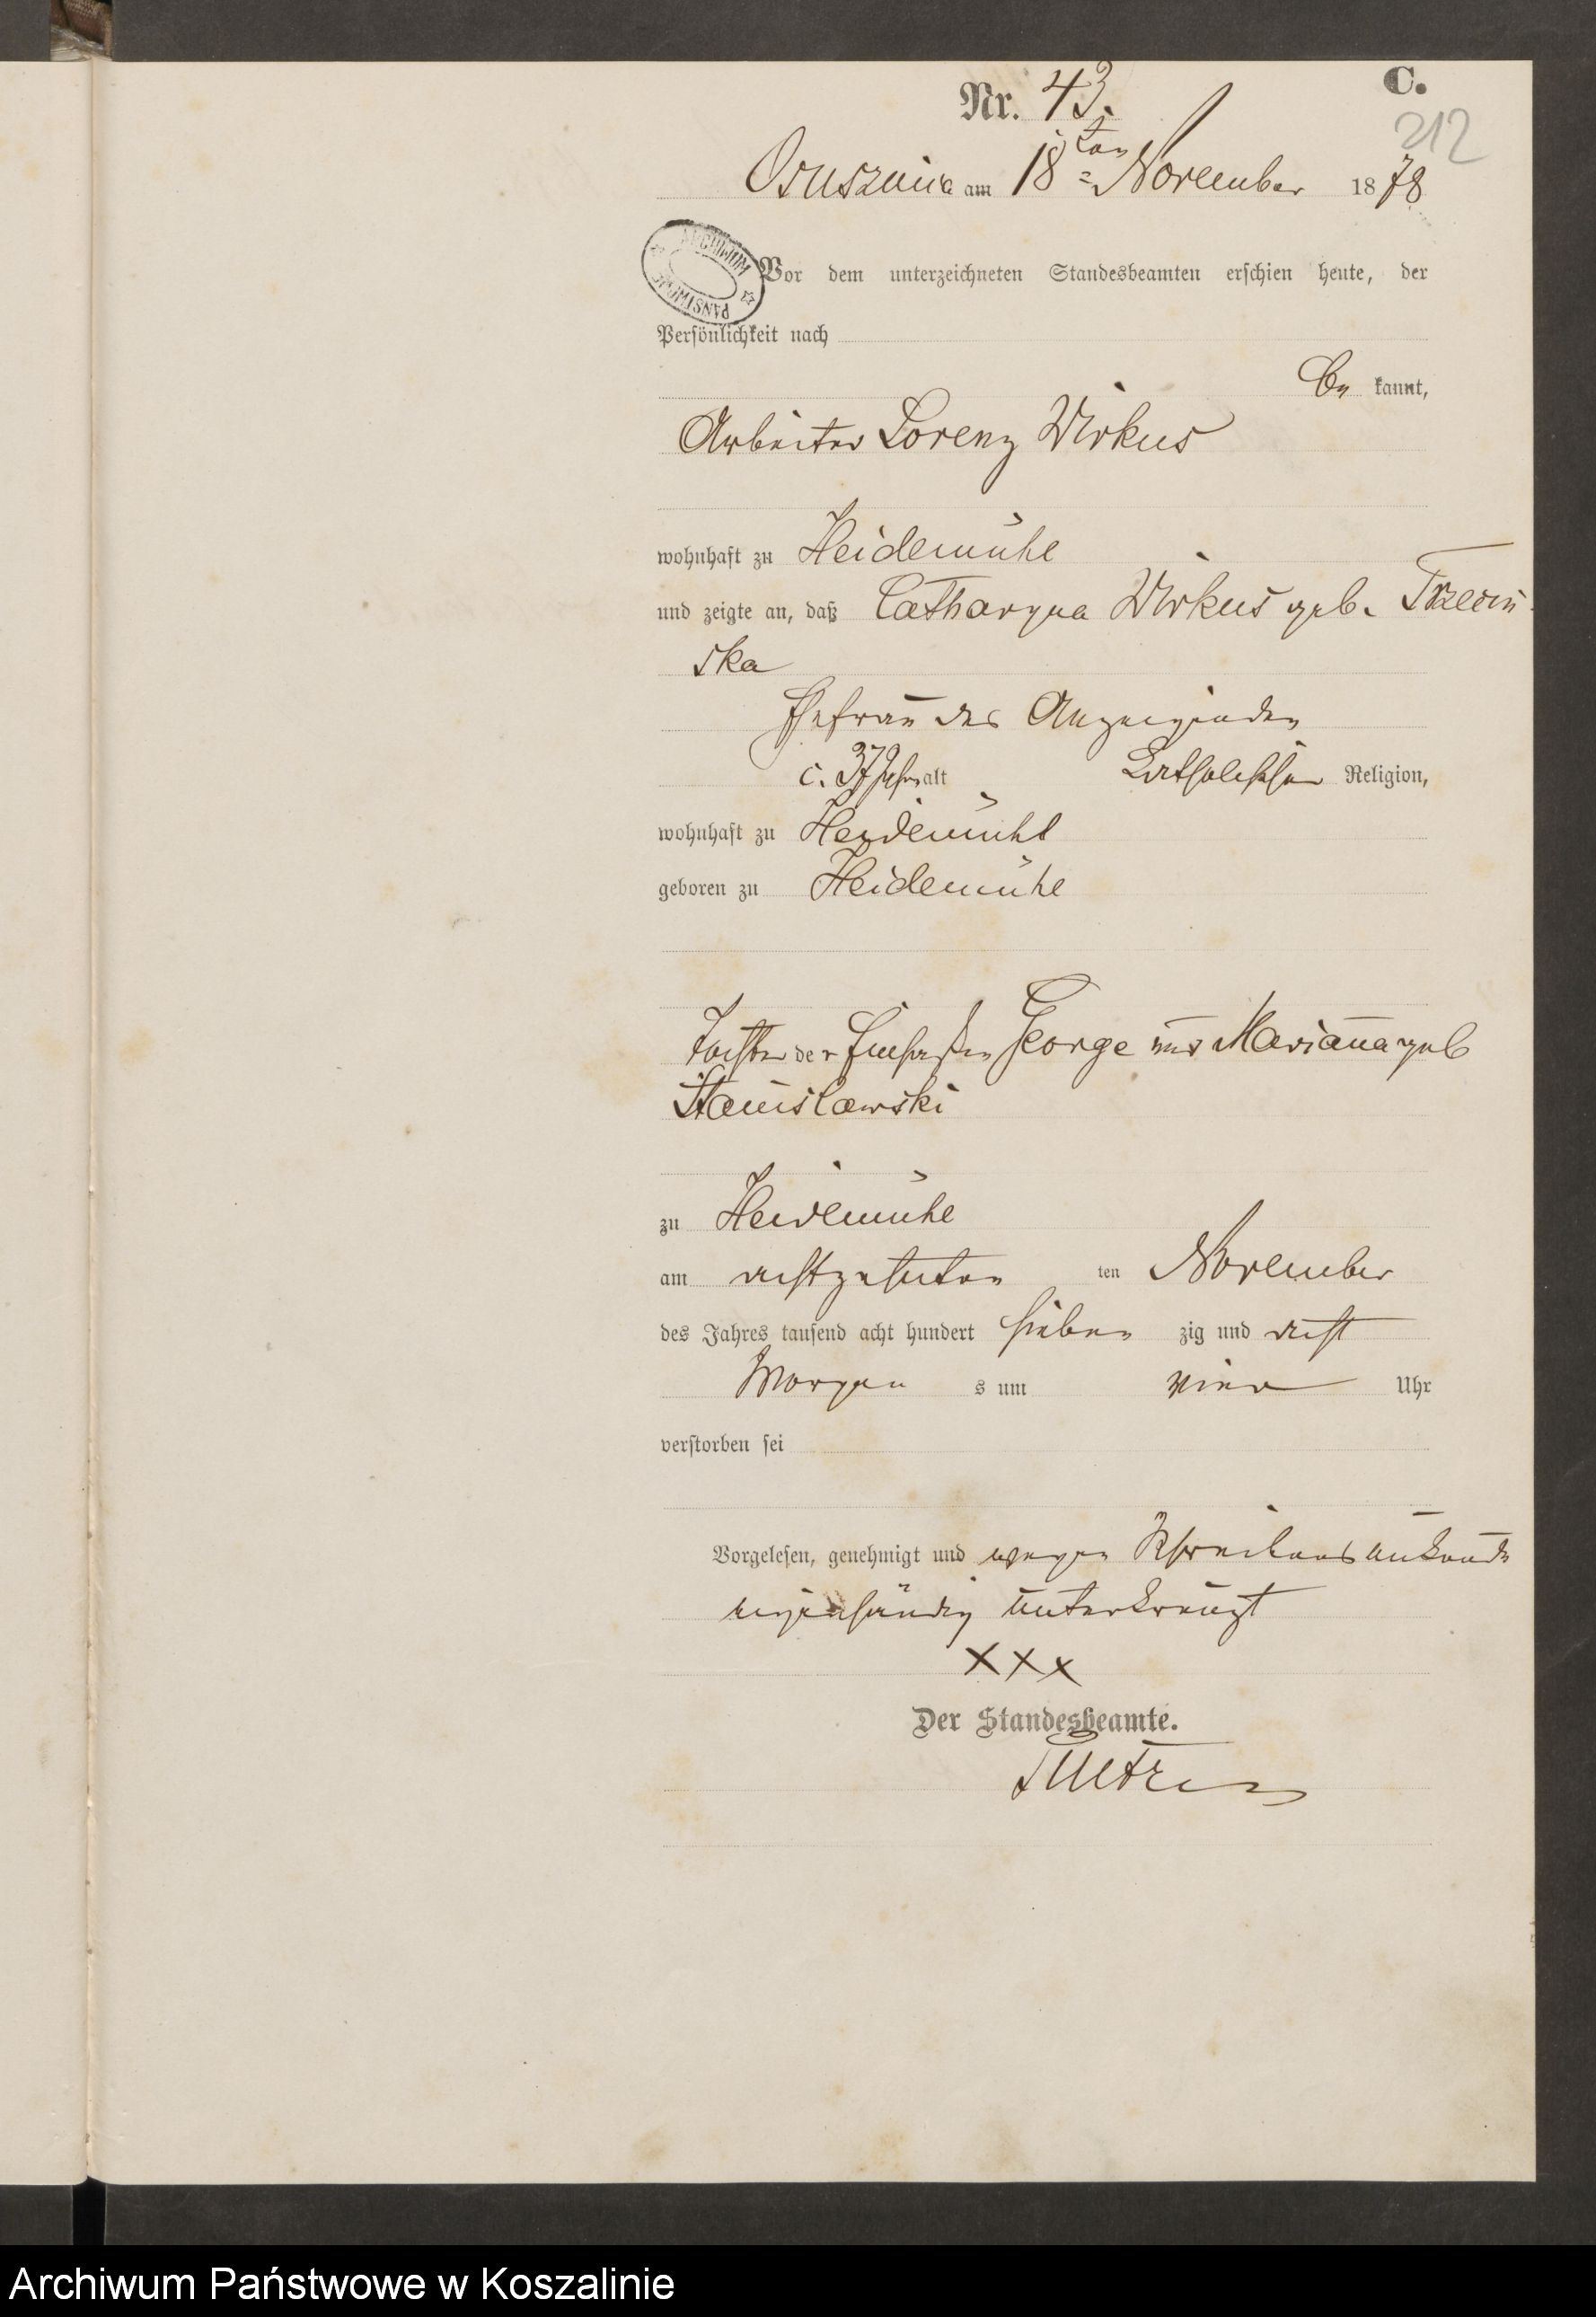 C.
Nr. 43.
212
Osusznica am 18ten November 1878
ARCHIWUM PAŃSTWOWE
Vor dem unterzeichneten Standesbeamten erschien heute, der
Persönlichkeit nach
be kannt,
Arbeiter Lorenz Wirkus
wohnhaft zu Heidemühe
und zeigte an, daß Catharyna Wirkus geb.
ska
Ehefrau des Anzeigenden
c. 37 Jahr alt katholischer Religion,
wohnhaft zu Heydemühl
geboren zu Heidemühe
Tochter der George und Marianna geb
Stanislawski
zu Heidemühe
am achtzehnten ten November
des Jahres tausend acht hundert sieben zig und acht
Morgen s um vier Uhr
verstorben sei
Vorgelesen, genehmigt und wegen Schreibensunkunde
eigenhändig unterkreuzt
XXX
Der Standesbeamte.
Archiwum Państwowe w Koszalinie